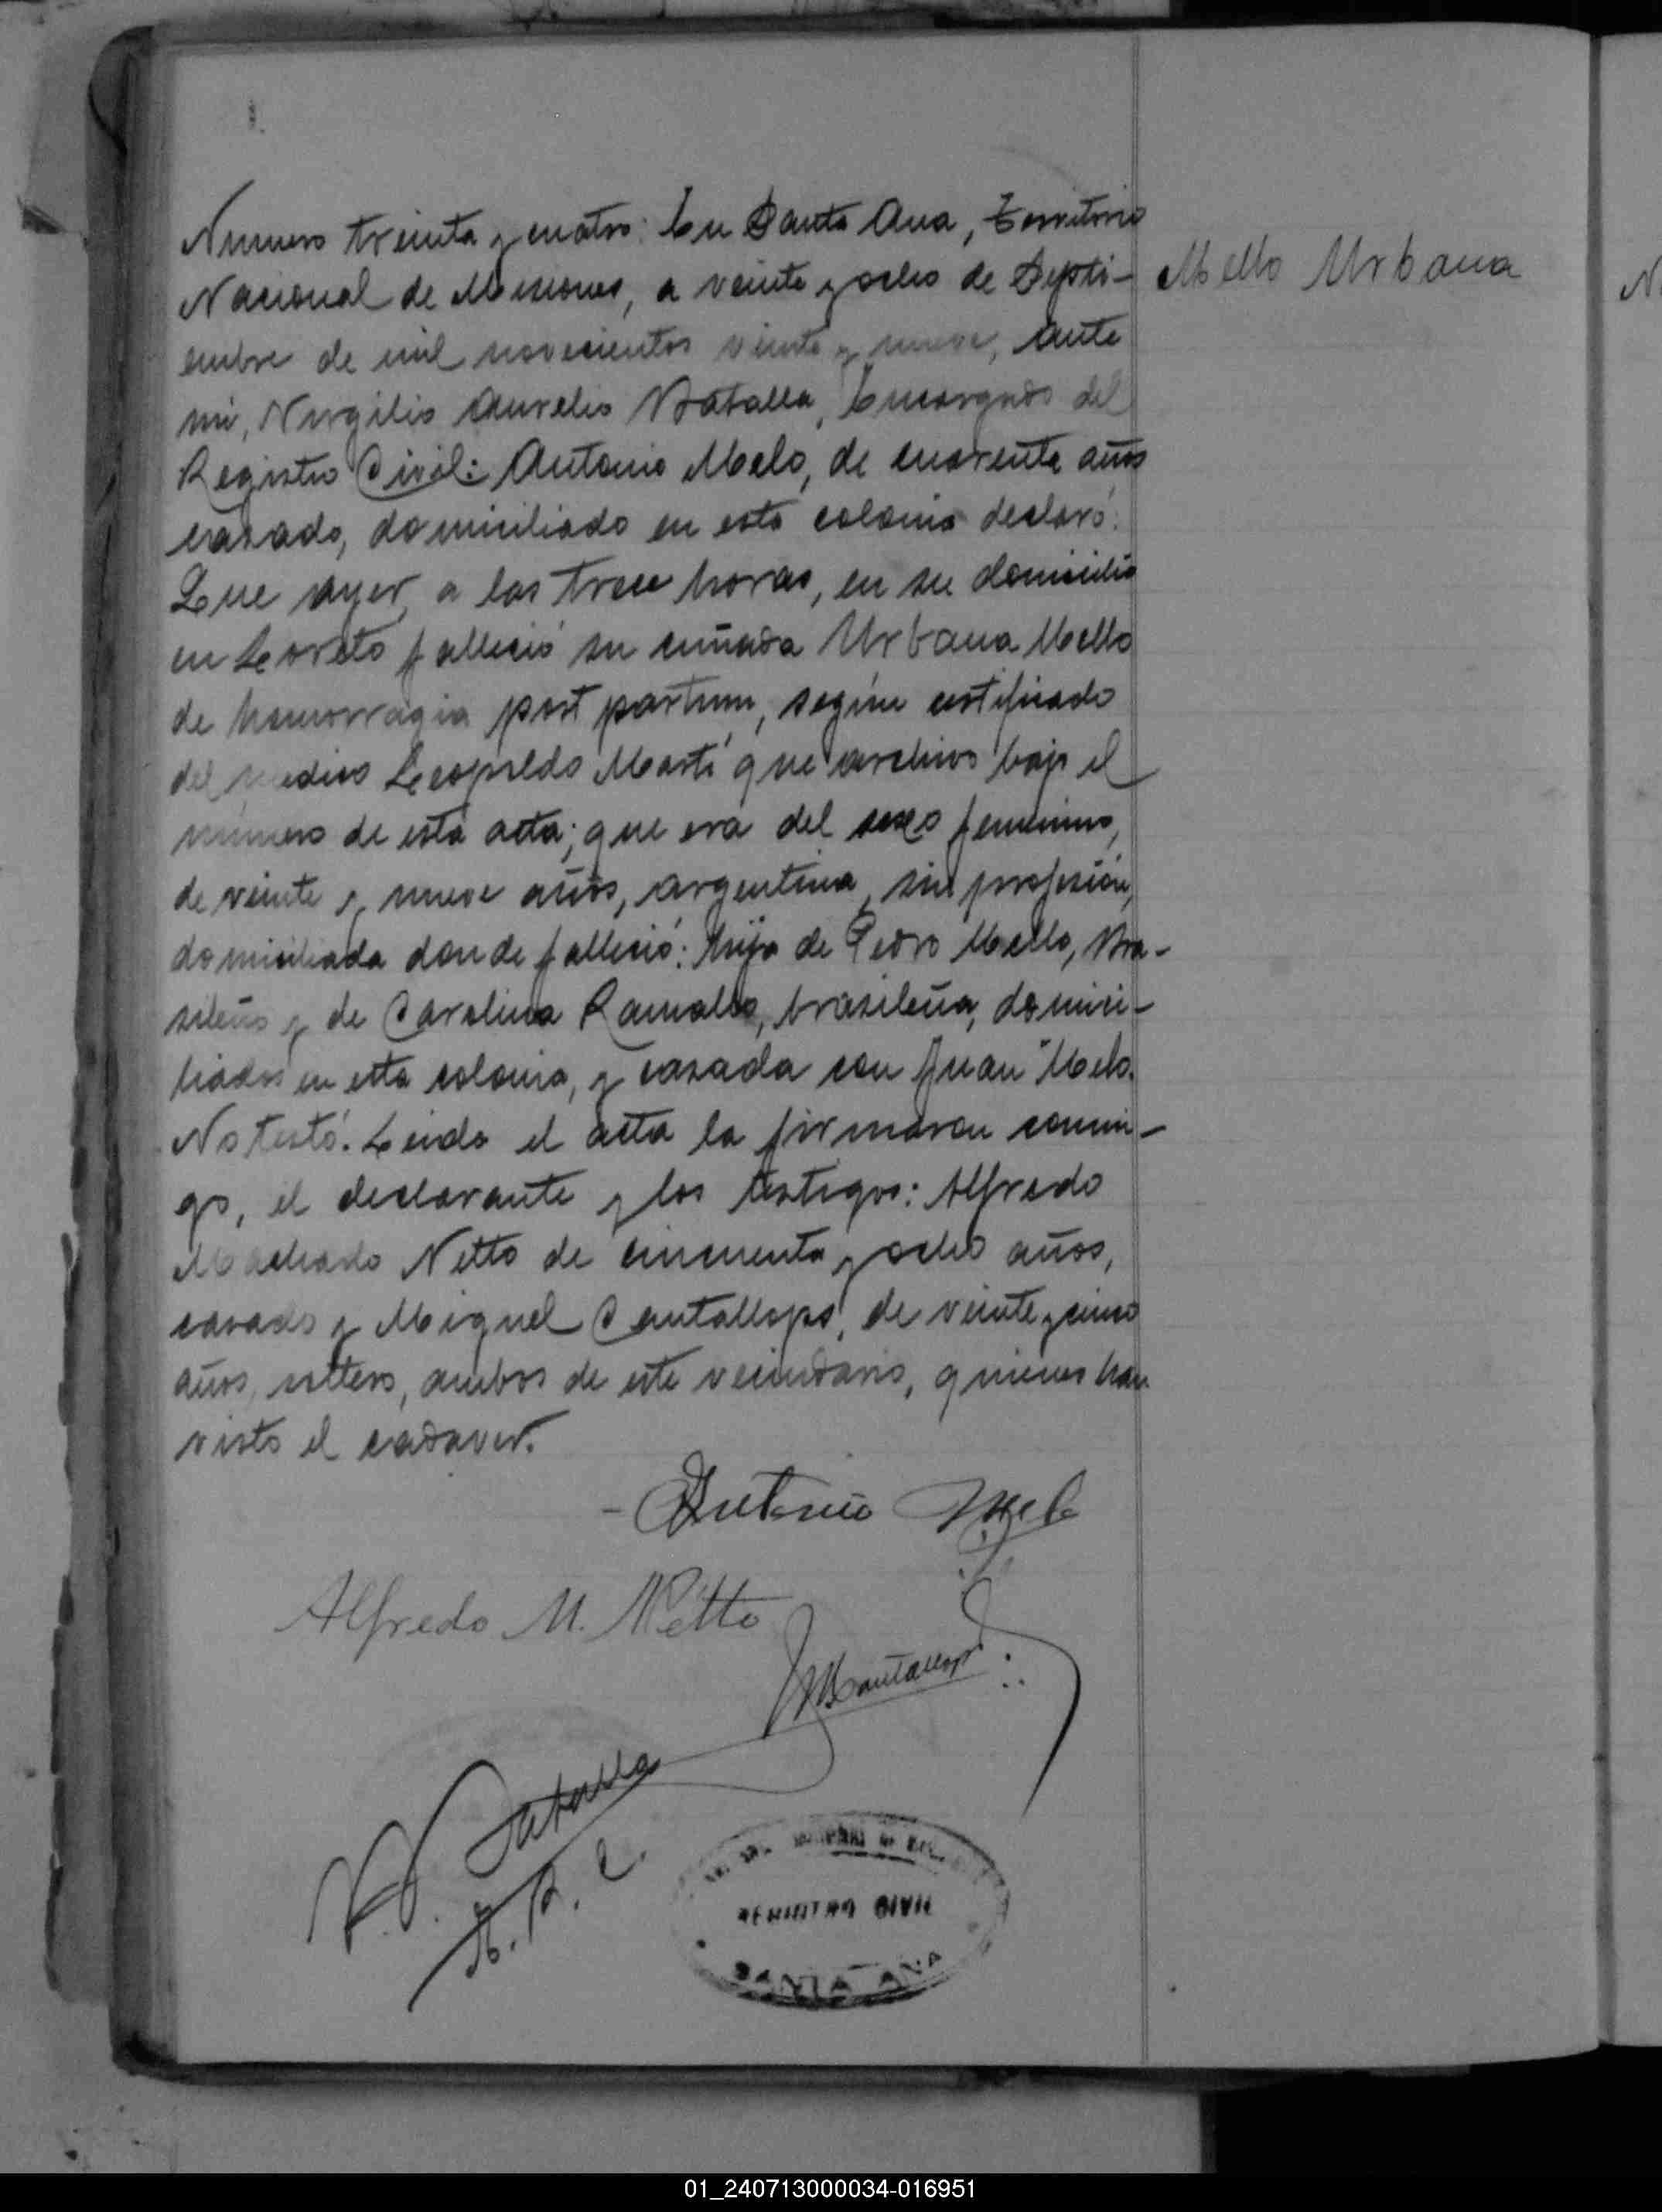 Numero treinta y cuatro: En Santa Ana, Territorio
Nacional de Misiones, a veinte y ocho de Septi-
embre de mil novecientos veinte y nueve, ante
mi, Virgilio Aurelio Batalla, Encargado del
Registro Civil: Antonio Melo, de cuarenta años
casado, domiciliado en esta colonia declaró:
Que ayer, a las trece horas, en su domicilio
en Loreto falleció su cuñada Urbana Mello
de hemorragia post partum, según certificado
del medico Leopoldo Martí que archivo bajo el
número de esta acta; que era del sexo femenino,
de veinte y nueve años, argentina, sin profesión,
domiciliada donde falleció: hija de Pedro Mello, bra-
sileño y de Carolina Ramalho, brasileña, domici-
liados en esta colonia, y casada con Juan Melo.
No testó. Leida el acta la firmaron conmi-
go, el declarante y los testigos: Alfredo
Machado Netto de cincuenta y ocho años,
casado y Miguel Cantallops, de veinte y cinco
años, soltero, ambos de este vecindario, quienes han
visto el cadaver.
Mello Urbana
Antonio Melo
Alfredo M. Netto
MCantallops
V. A. Batalla
E. R. C.
REGISTRO CIVIL
SANTA ANA
01_240713000034-016951